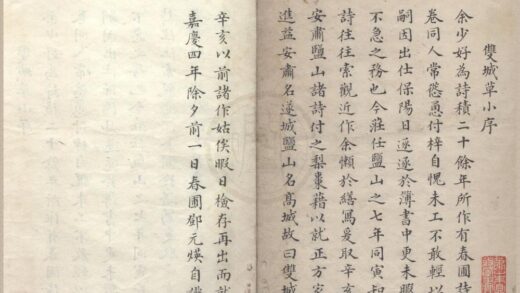 雙城草小序
余少好為詩積二十餘年所作有春圃詩
卷同人常慫恿付梓自愧未工不敢輕以
嗣因出仕保陽日逐逐於簿書中更未暇
不急之務也今莅任鹽山之七年同寅知
詩往往索觀近作余懶於繕寫爰取辛亥
安肅鹽山諸詩付之梨棗藉以就正方家
進益安肅名遂城鹽山名高城故曰雙城
辛亥以前諸作姑俟暇日檢存再出而就
嘉慶四年除夕前一日春圃鄧元煐自